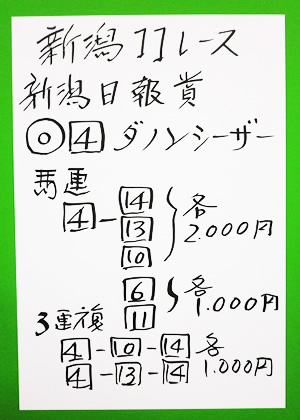 新潟11レース
新潟日報賞
◎4 ダノンシーザー
馬連
4-14
13
10
各2.000円
6
11
各1.000円
3連複
4-10-14 各
4-13-14 1.000円